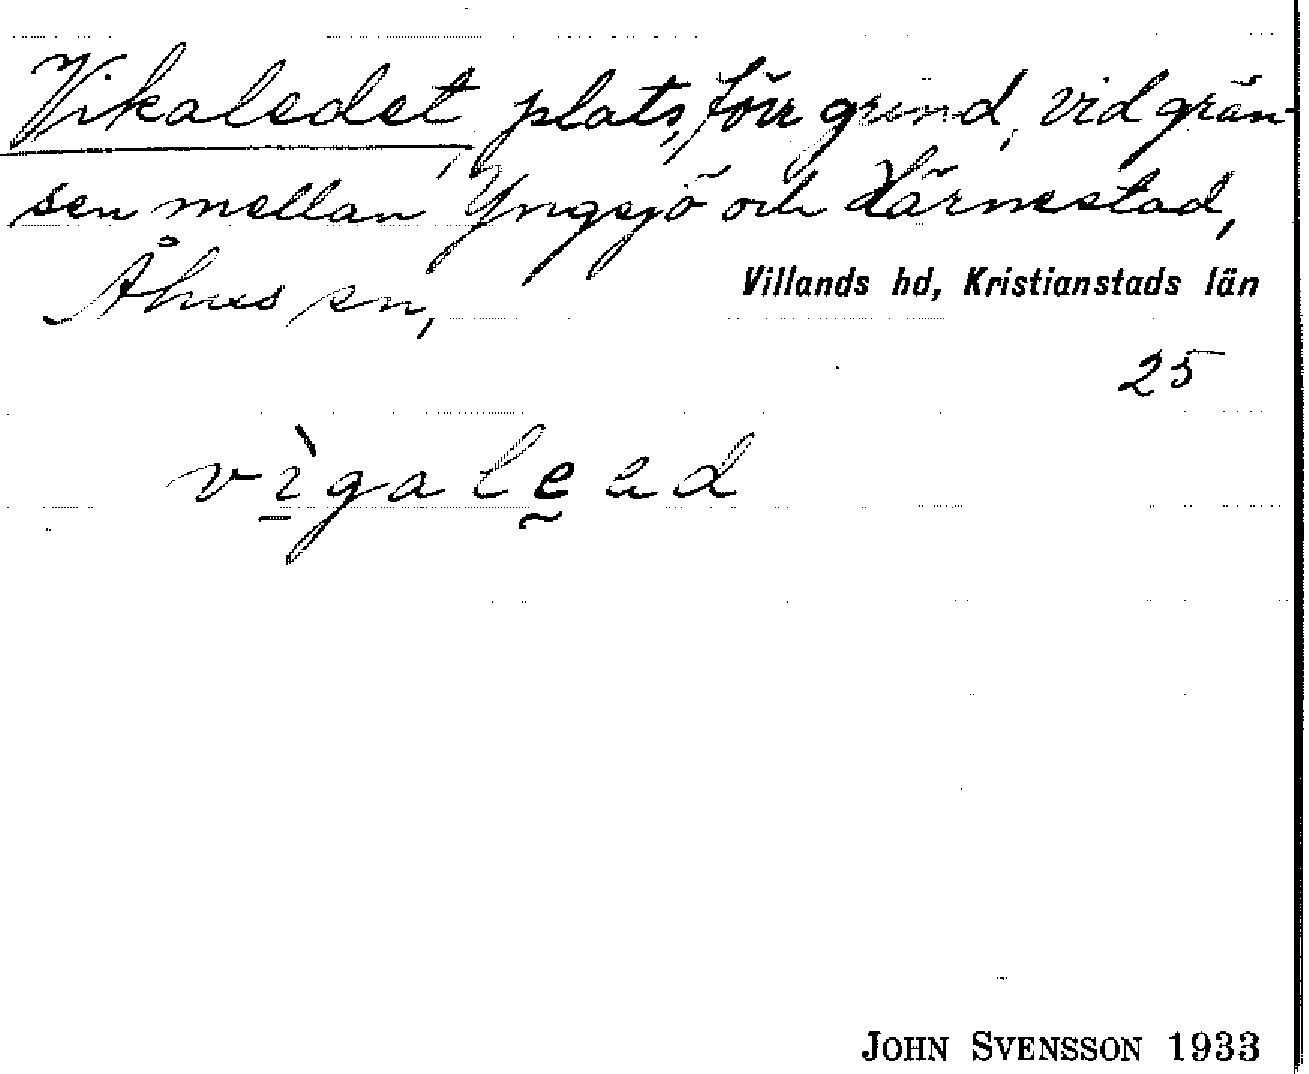 Vikaledet, plats, förr grind, vid grän-
sen mellan Yngsjö och Härnestad,
Åhus sn,
Villands hd, Kristianstads län
25
vìgaleɐd
JOHN SVENSSON 1933